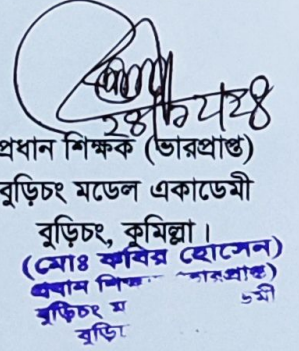 প্রধান শিক্ষক (ভারপ্রাপ্ত)
বুড়িচং মডেল একাডেমী
বুড়িচং, কুমিল্লা।
(মোঃ কবির হোসেন)
প্রধান শিক্ষ ভারপ্রাপ্ত)
বুড়িচং ম ডমী
বুড়ি